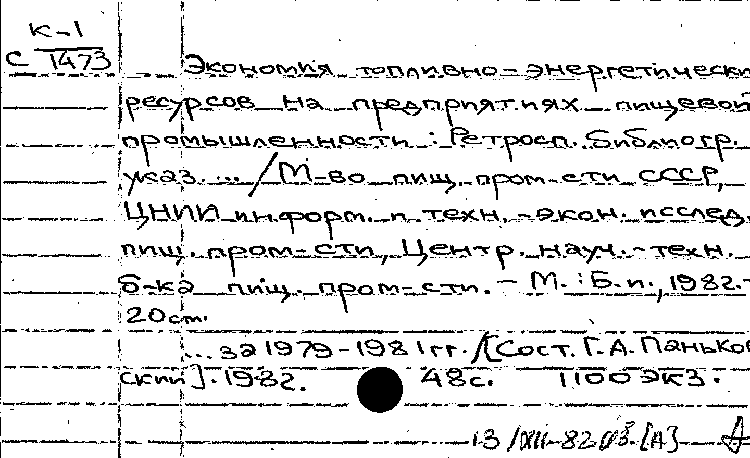 К-1
С 1473
Экономия топливно-энергетически
ресурсов на предприятиях пищевой
промышленности : Ретросп. библиогр.
указ. ... / М-во пищ. пром-сти СССР,
ЦНИИ информ. и техн.-экон. исслед.
пищ. пром-сти, Центр. науч.-техн.
б-ка пищ. пром-сти. - М. : Б.и., 1982.-
20 cm.
... за 1979-1981 гг. / [Сост. Г.А. Панько
ский]. 1982. 48 с. 1100 экз.
13/XII-82 [А]